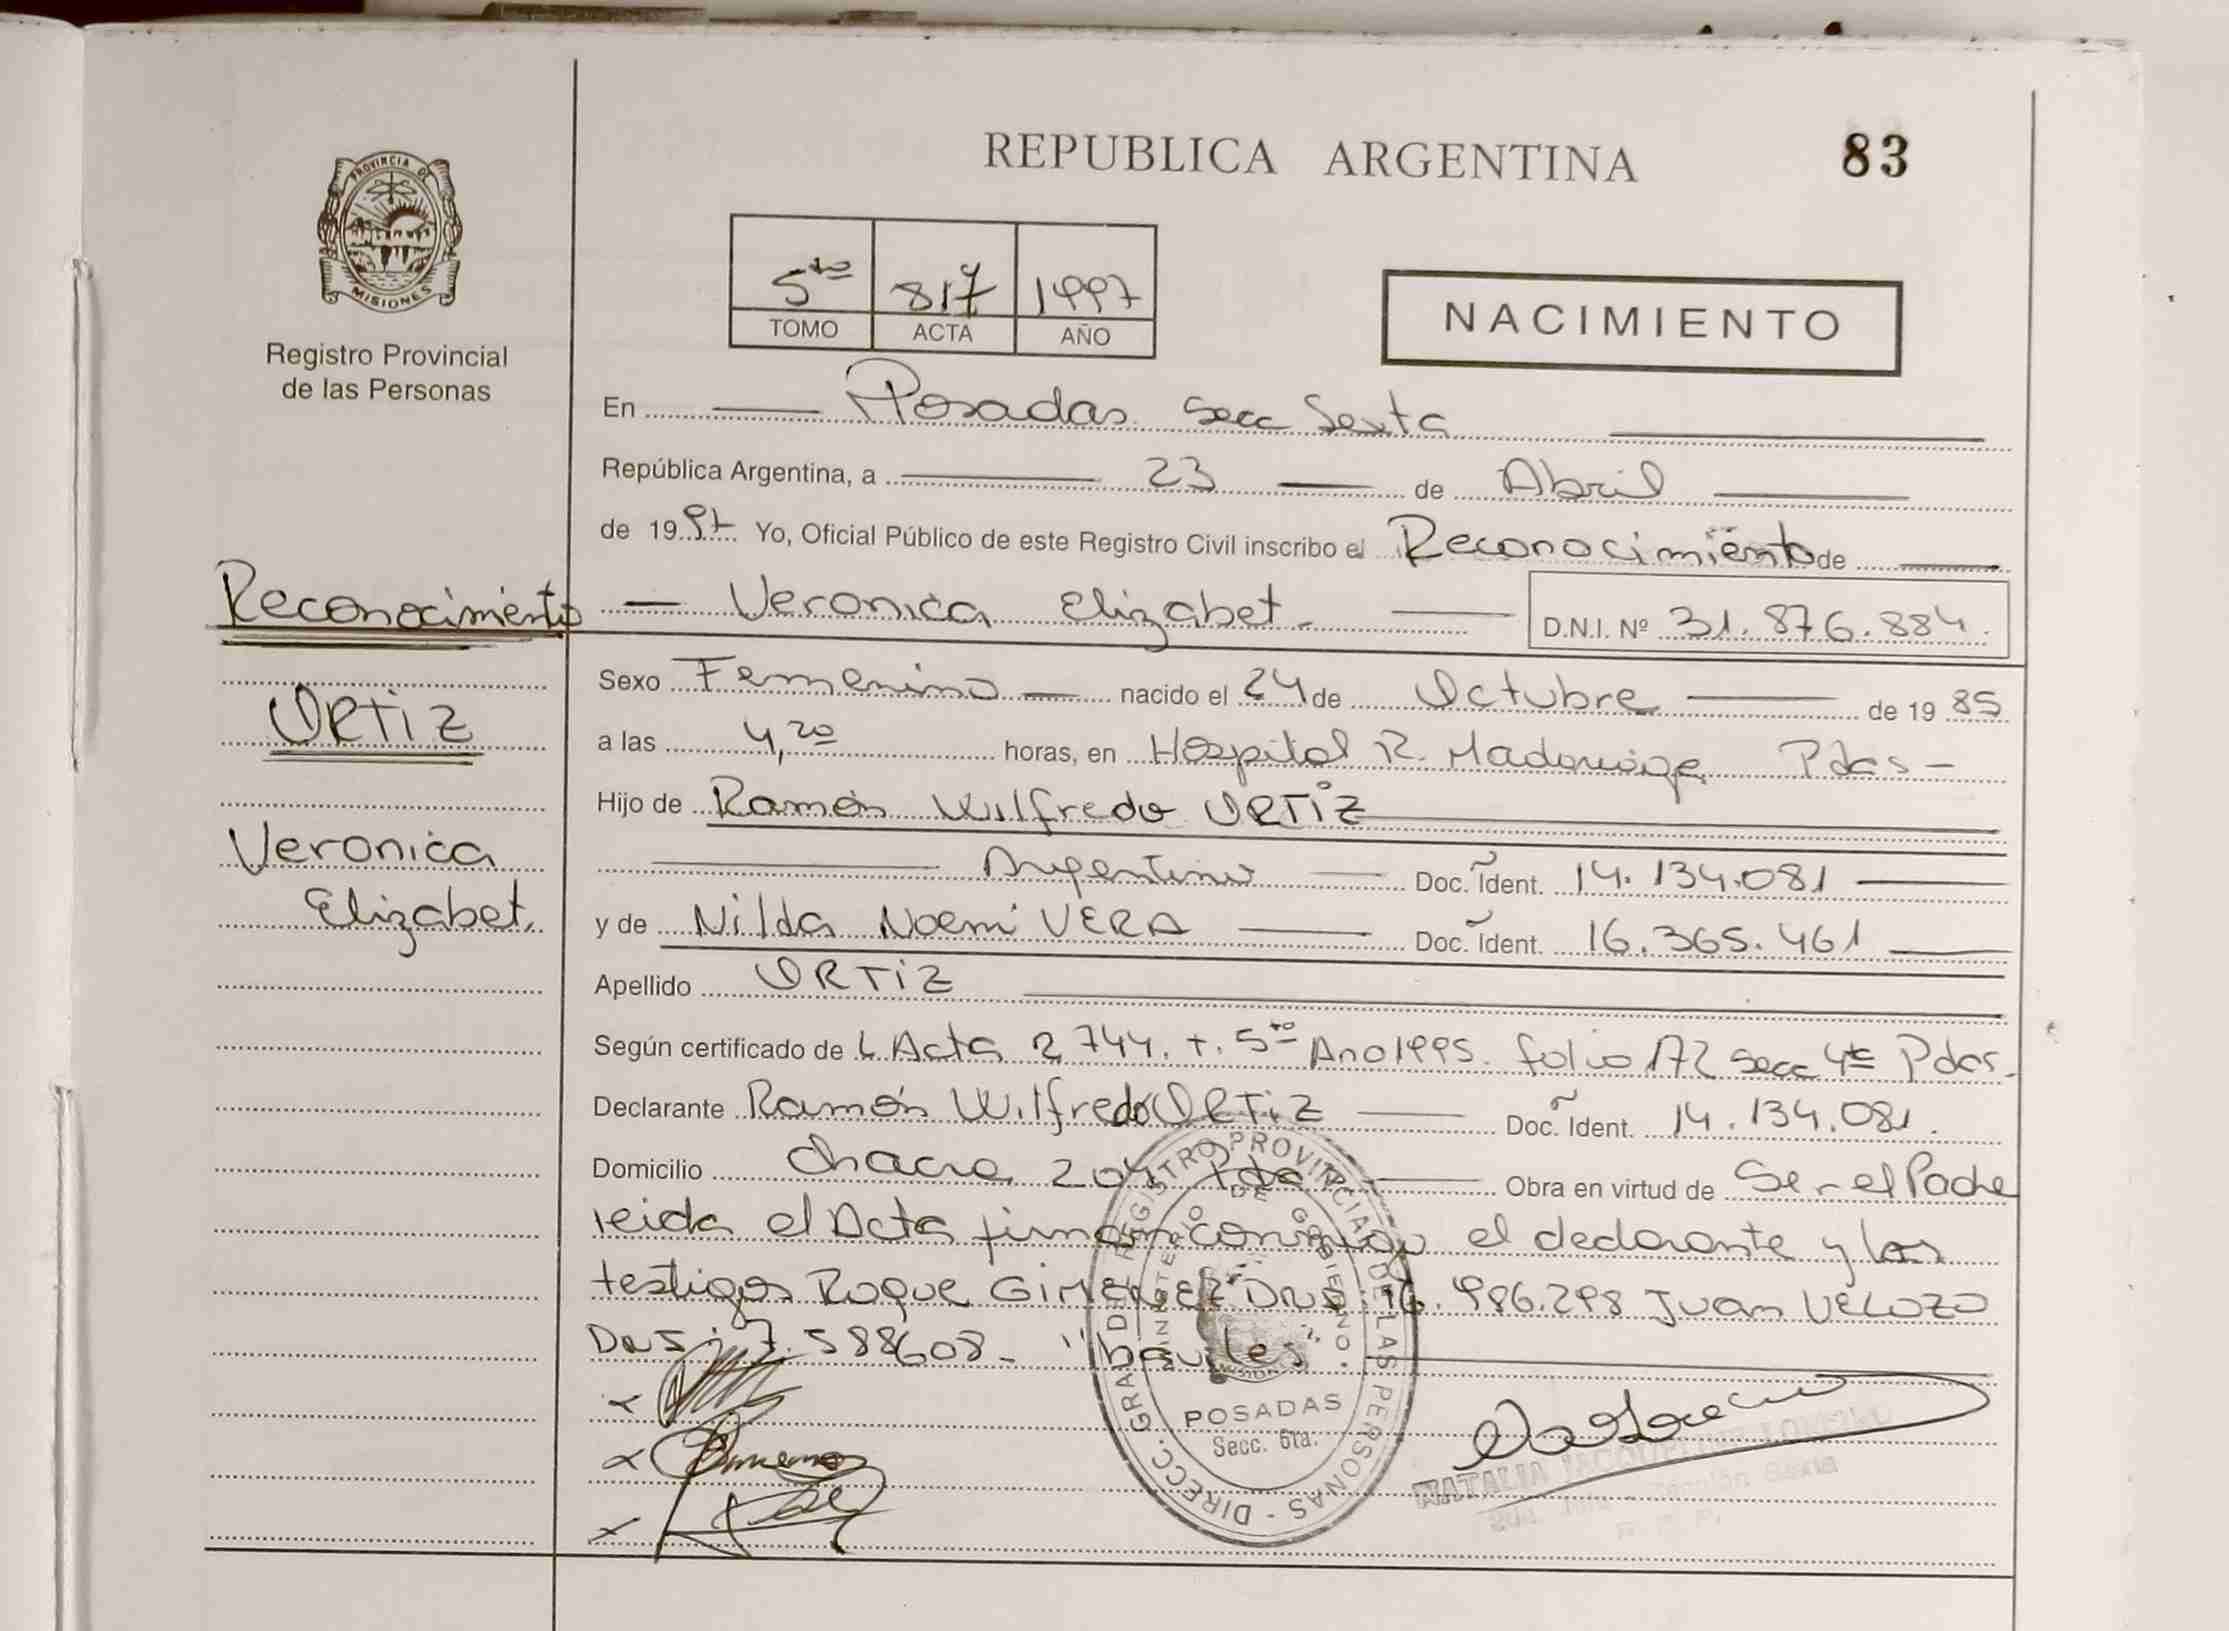 REPUBLICA ARGENTINA
83
PROVINCIA DE MISIONES
Registro Provincial
de las Personas
5to 817 1997
TOMO ACTA AÑO
NACIMIENTO
En Posadas Secc Sexta
República Argentina, a 23 de Abril
de 1997 Yo, Oficial Público de este Registro Civil inscribo el Reconocimiento de
Veronica Elizabet.
D.N.I. Nº 31.876.884.
Reconocimiento
ORTiZ
Veronica
Elizabet.
Sexo Femenino nacido el 24 de Octubre de 1985
a las 4,20 horas, en Hospital R. Madariaga Pdas -
Hijo de Ramón Wilfredo ORTiZ
Argentino Doc. Ident. 14.134.081
y de Nilda Noemi VERA Doc. Ident. 16.365.461
Apellido ORTiZ
Según certificado de L Acta 2744. t. 5to Año 1995. folio 172 Secc 4ta Pdas.
Declarante Ramón Wilfredo ORTiZ Doc. Ident. 14.134.081.
Domicilio Chacra 204 Pdas Obra en virtud de Ser el Padre
leida el Acta firman conmigo el declarante y los
testigos Roque GiMENEZ DNI: 16.986.298 Juan VELOZO
DNI: 7.588608 - "habiles"
DIRECC. GRAL. DEL REGISTRO PROVINCIAL DE LAS PERSONAS
MINISTERIO DE GOBIERNO
MISIONES
POSADAS
Secc. 6ta.
NATALIA JACQUELINE
Sección Sexta
R. P. P.